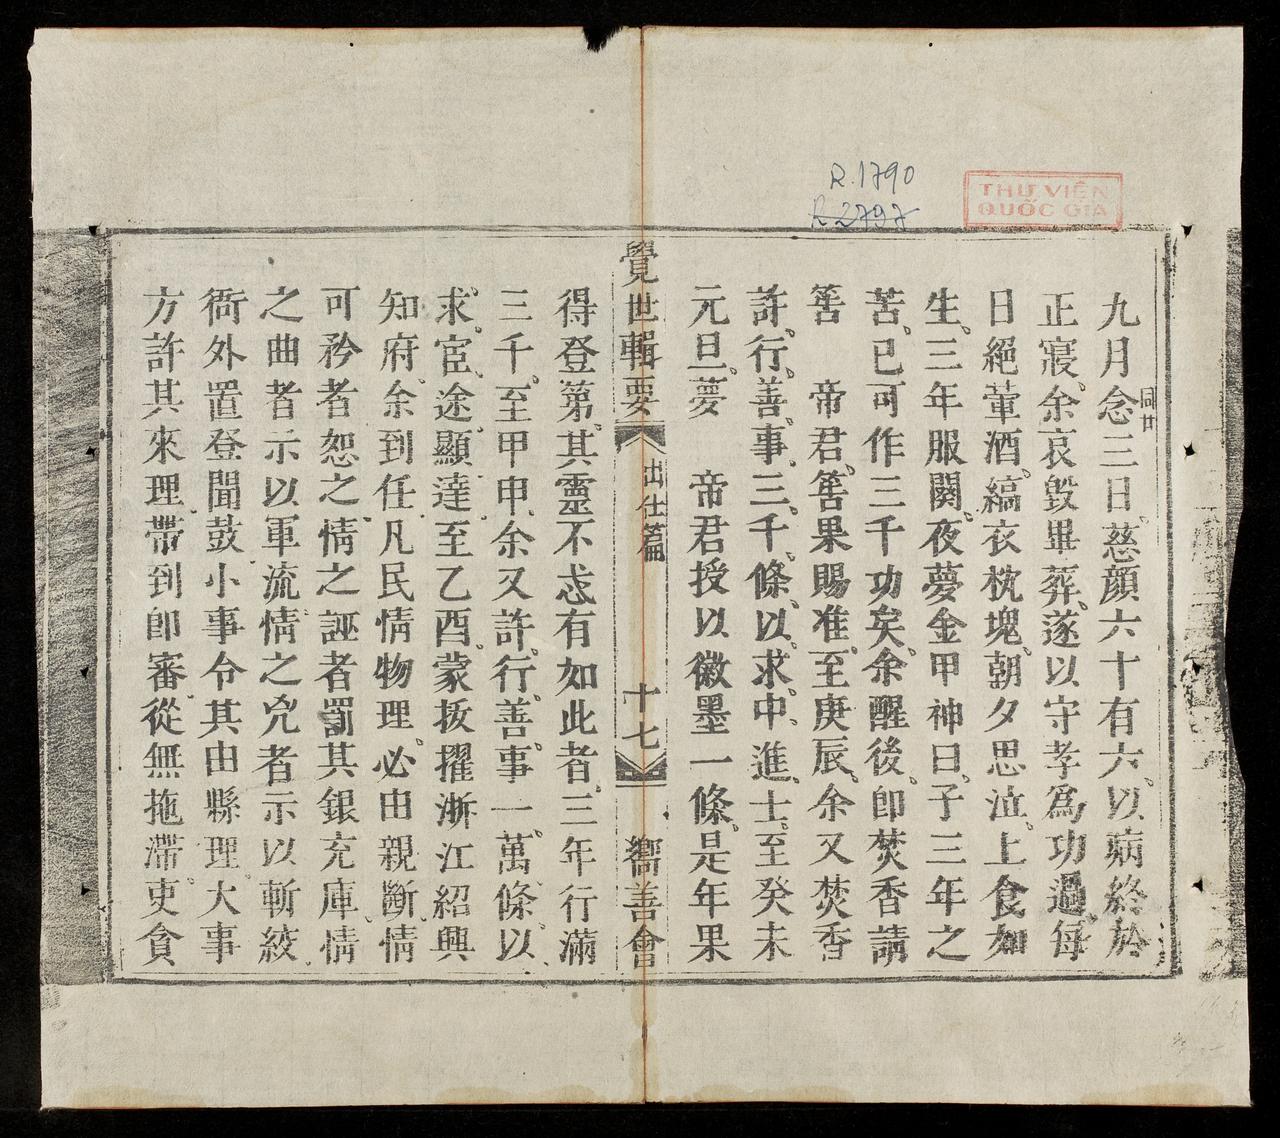 R.1790
R 2797
THƯ VIỆN
QUỐC GIA
九月念三日。慈顔六十有六。以病終於
同廿
正寢。余哀毀畢葬。遂以守孝爲功過。每
日絕葷酒。縞衣枕塊。朝夕思泣。上食如
生。三年服闋。夜夢金甲神曰。子三年之
苦。已可作三千功矣。余醒後。卽焚香請
筶　帝君。筶果賜准。至庚辰。余又焚香
許。行。善。事。三。千。條。以。求。中。進。士。至癸未
元旦。夢　帝君授以徽墨一條。是年果
覺世輯要　出仕篇　十七　嚮善會
得登第。其靈不忒有如此者。三年行滿
三千。至甲申。余又許。行。善。事。一。萬。條。以
求。宦。途。顯。達。至乙酉。蒙拔擢浙江紹興
知府。余到任。凡民情物理。必由親斷。情
可矜者恕之。情之誣者罰其銀充庫。情
之曲者示以軍流。情之兇者示以斬絞
衙外置登聞鼓。小事令其由縣理。大事
方許其來理。帶到卽審。從無拖滯。吏貪